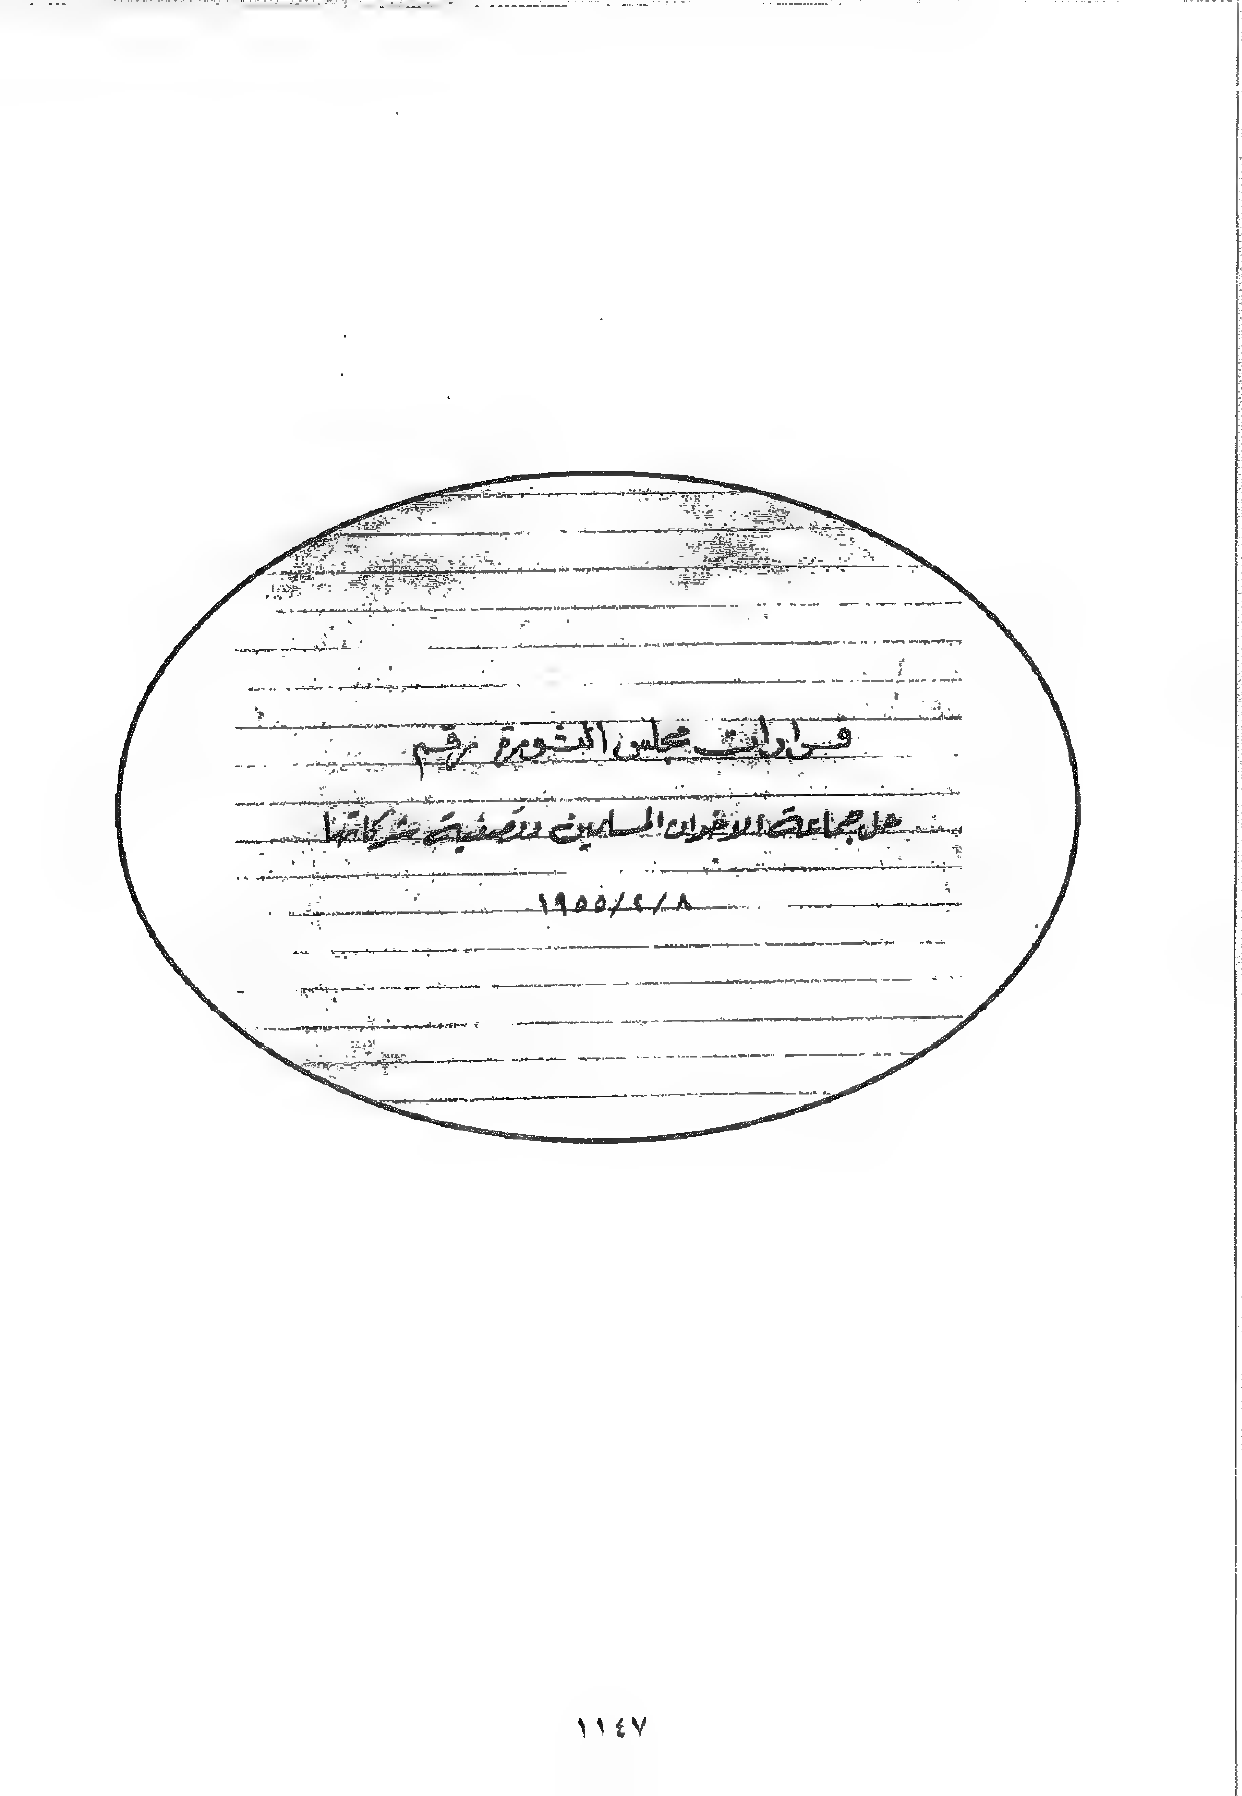 قرارات مجلس الثورة رقم
حل جماعة الاخوان المسلمين وتصفية شركاتها
٨/٤/١٩٥٥
١١٤٧